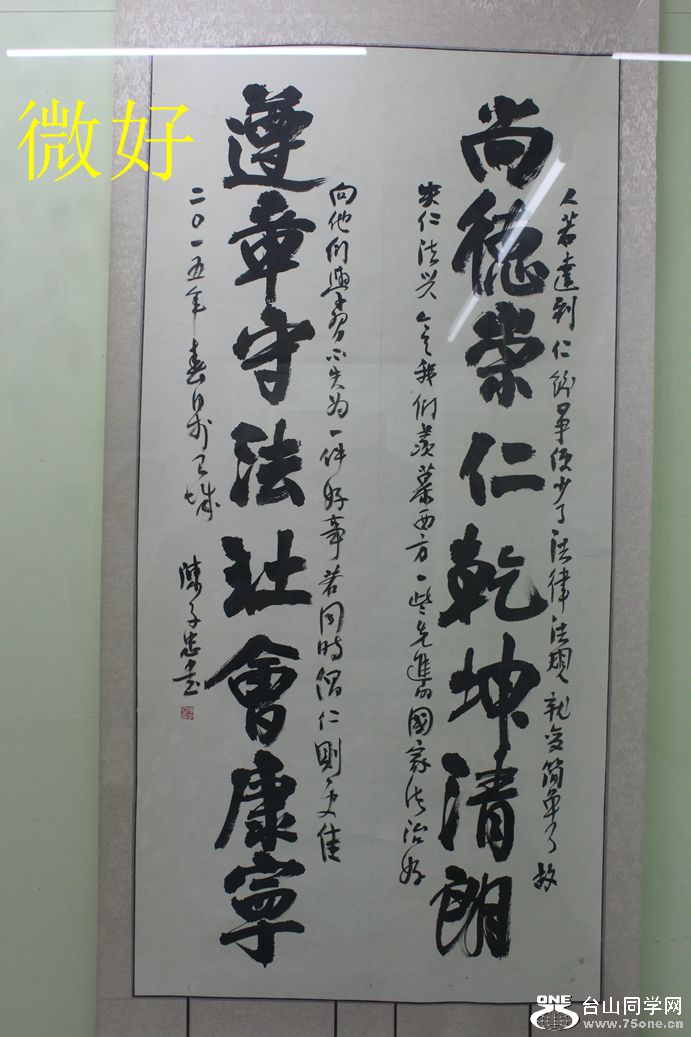 微好
人若達到仁 便少了法律法規就变简单了故
尚德崇仁乾坤清朗
失仁法兴今天我们羡慕西方一些先進的國家法治好
向他们學習不失为一件好事若同時倡仁則更佳
遵章守法社會康寧
二〇一五年春月於 城 陳子忠書
ONE 台山同学网
www.75one.cn